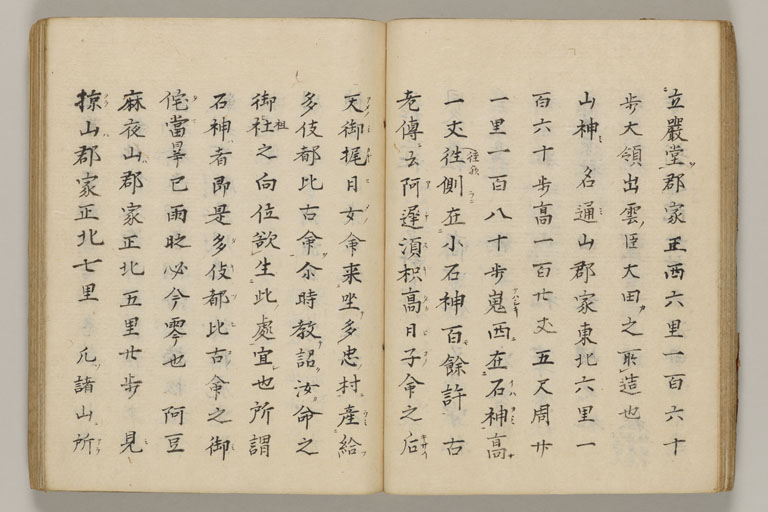 立嚴堂郡家正西六里一百六十
步大領出雲臣大田之所造也
山神 名通山郡家東北六里一
百六十步高一百廿丈五尺周廿
一里一百八十步嵬西在石神高
一丈徃側在小石神百餘許 古
老傳云阿遲湏枳高日子命之后
天御掍日女命来坐多忠村産給
多伎都比古命尒時教詔汝命之
御社之向位欲生此處宜也所謂
石神者即是多伎都比古命之御
侘當旱乞雨時必今零也 阿豆
麻夜山郡家正北五里廿步 見
掠山郡家正北七里 凡諸山所